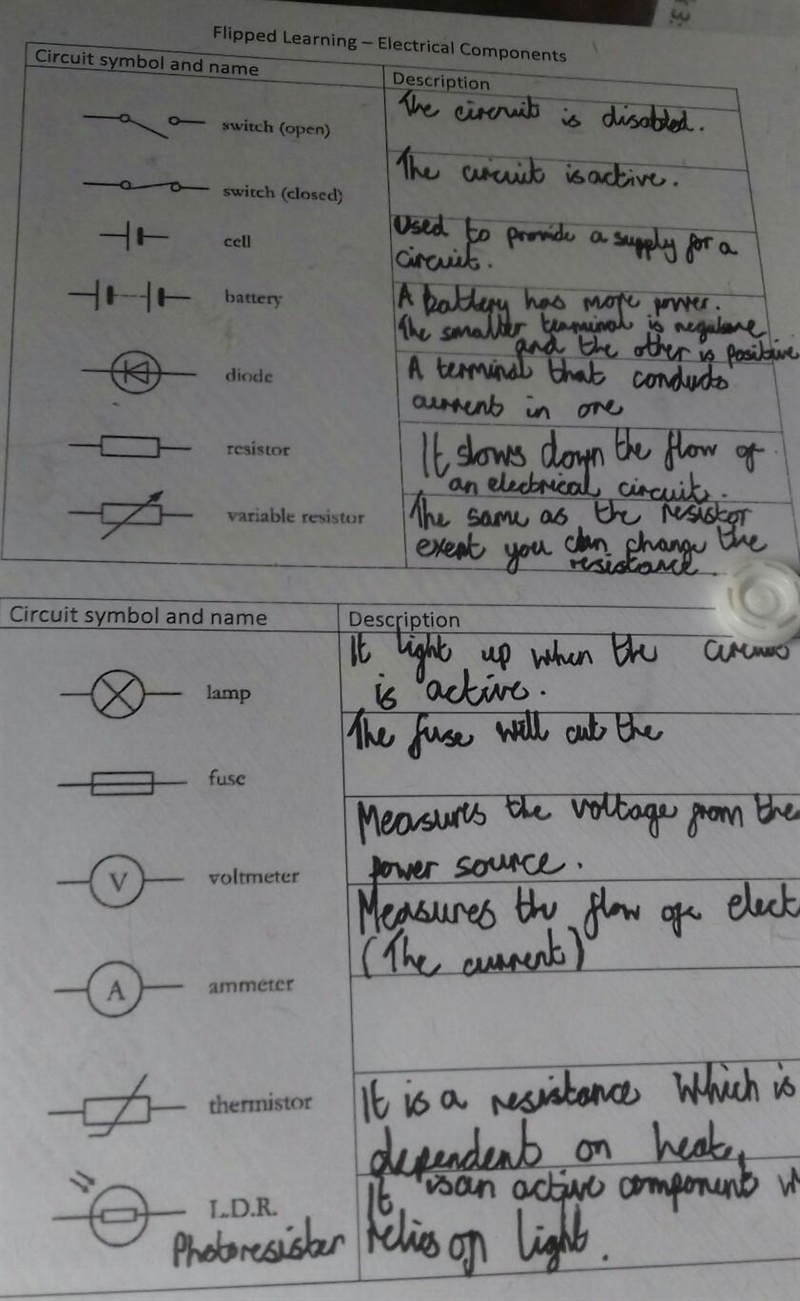 Flipped Learning – Electrical Components
Circuit symbol and name
Description
switch (open)
The circuit is disabled.
switch (closed)
The circuit is active.
cell
Used to provide a supply for a
circuit.
battery
A battery has more power.
The smaller terminal is negative
and the other is positive
diode
A terminal that conducts
current in one
resistor
It slows down the flow of
an electrical circuit.
variable resistor
The same as the resistor
exept you can change the
resistance
Circuit symbol and name
Description
lamp
It light up when the
is active.
fuse
The fuse will cut the
voltmeter
V
Measures the voltage from the
power source.
ammeter
A
Measures the flow of elect
(The current)
thermistor
It is a resistance which is
dependent on heat,
L.D.R.
Photoresister
It is an active component
relies on light.